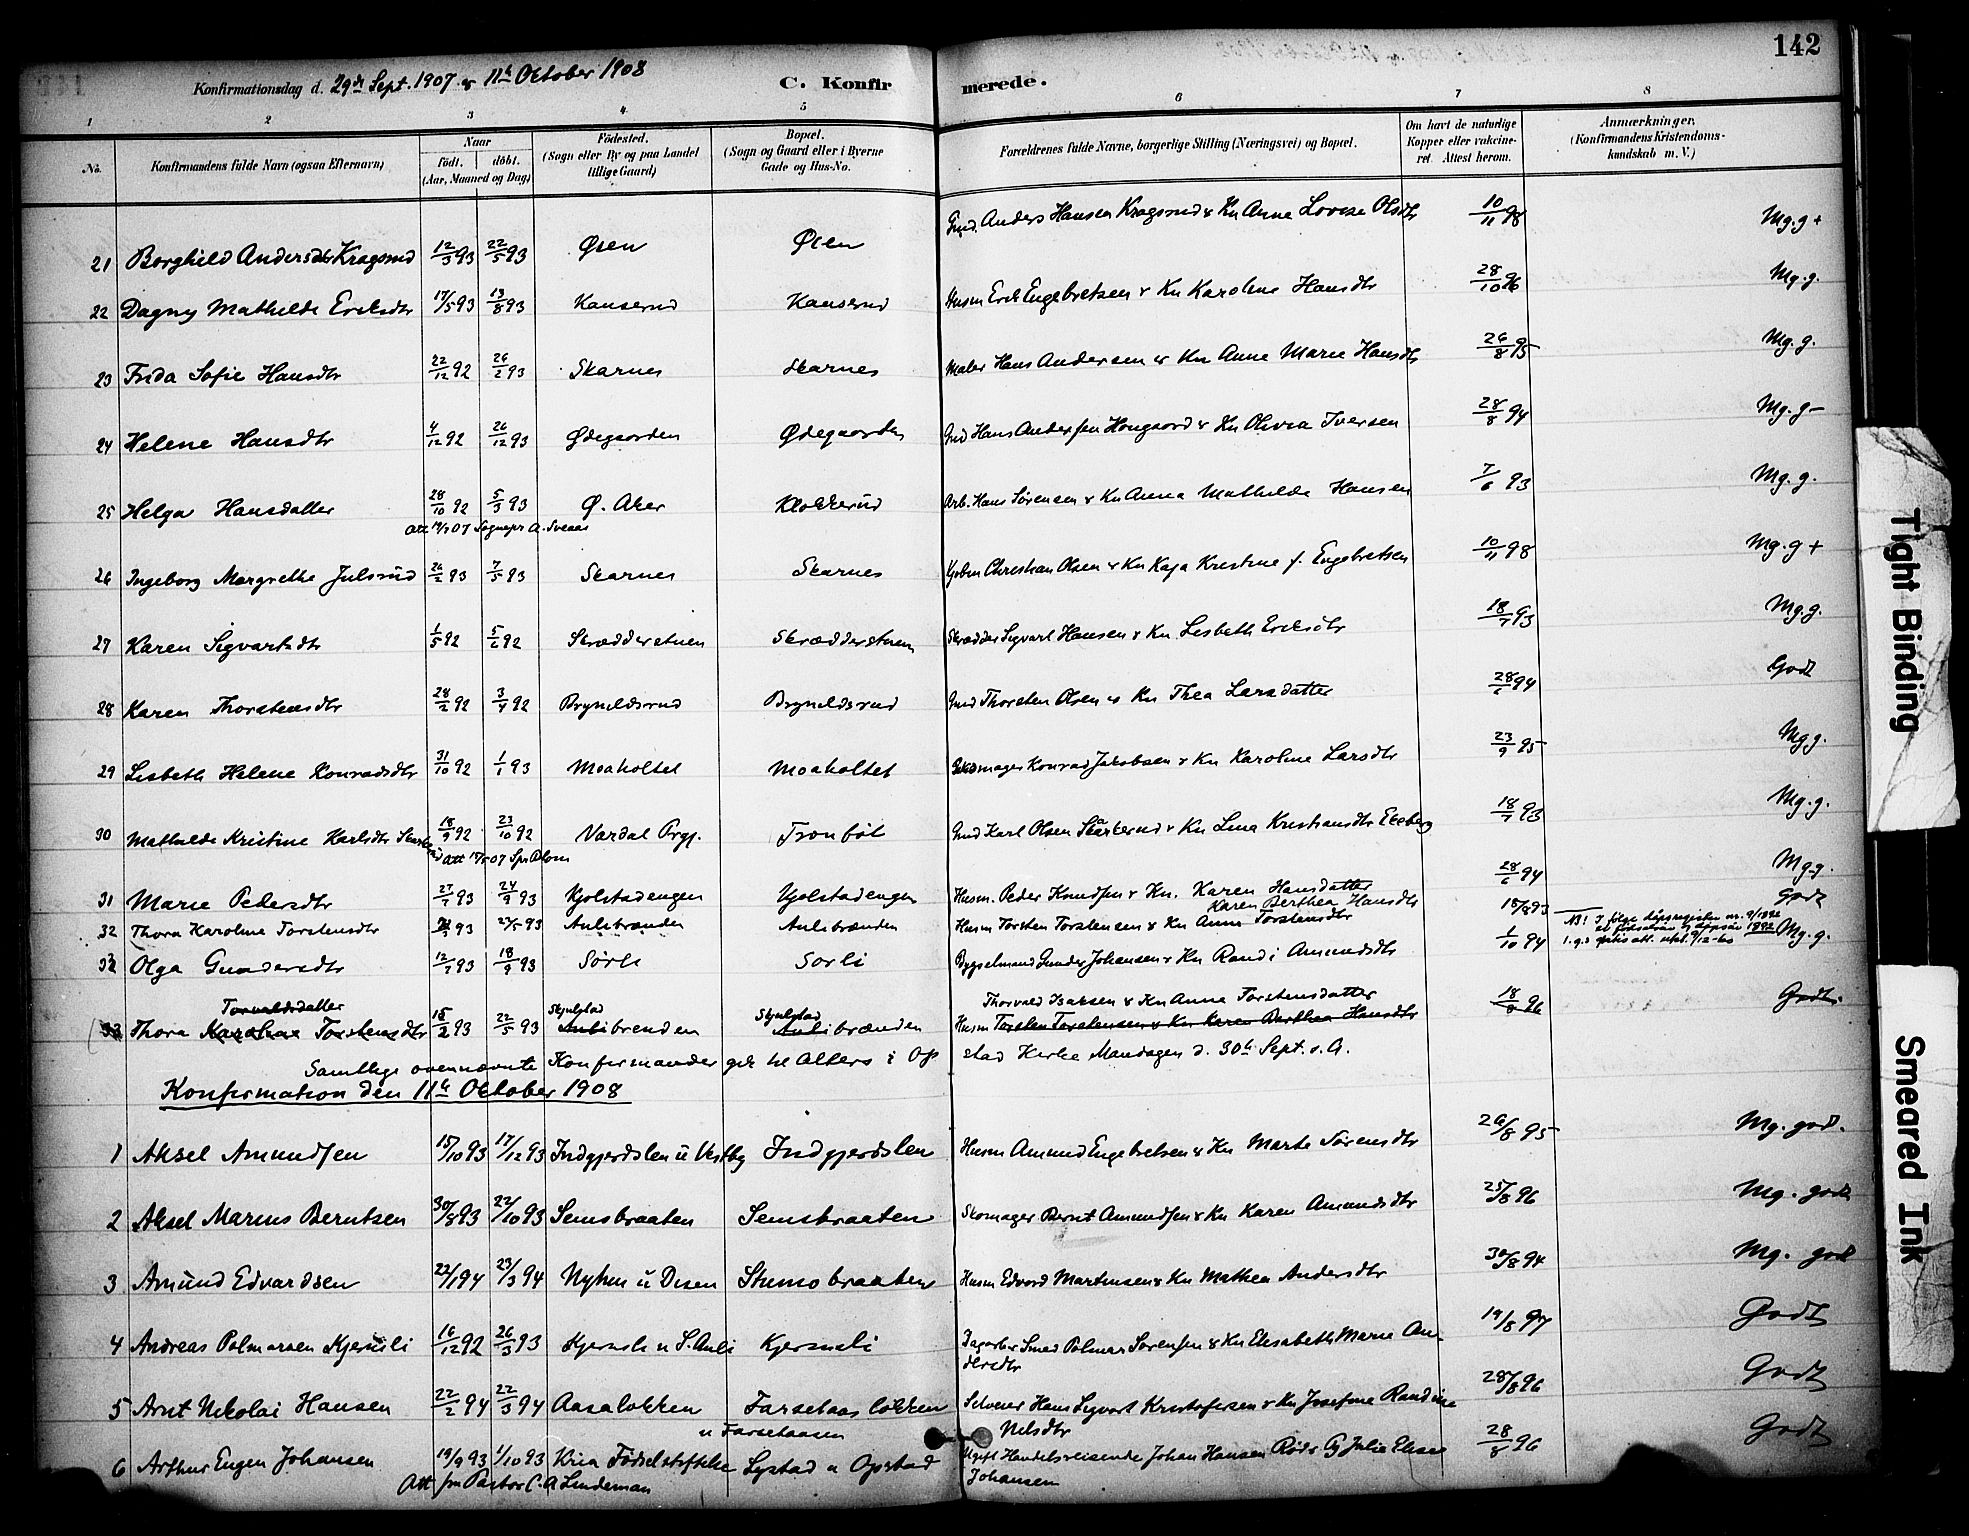 142
Konfirmationsdag d. 29de Sept. 1907 & 11te Oktober 1908 C. Konfirmerede.
1 2 3 4 5 6 7 8
No. Konfirmandens fulde Navn (ogsaa Efternavn) Naar født. døbt. (Aar, Maaned og Dag) Fødested. (Sogn eller By og paa Landet tillige Gaard) Bopæl. (Sogn og Gaard eller i Byerne Gade og Hus-No. Forældrenes fulde Navne, borgerlige Stilling (Næringsvei) og Bopæl. Om havt de naturlige Kopper eller vaccineret Attest herom. Anmærkninger. (Konfirmandens Kristendomskundskab m. V.)
21 Borghild Andersdtr Kragsrud 12/3 93 22/5 93 Øien Øien Gmd. Anders Hansen Kragsrud & Kn Anna Lovise Olsdtr 10/11 98 Mg.g +
22 Dagny Mathilde Eriksdtr 17/5 93 13/8 93 Kanserud Kanserud Husm Erik Engebretsen & Kn Karoline Hansdtr 28/10 96 Mg.g.
23 Frida Sofie Hansdtr 22/12 92 26/2 93 Skarnes Skarnes Maler Hans Andersen & Kn Anne Marie Hansdtr 26/8 95 Mg.g.
24 Helene Hansdtr 4/12 92 26/12 93 Ødegaarden Ødegaarden Gmd Hans Anderssen Hougaard & Kn Olivia Iversen 28/8 94 Mg.g-
25 Helga Hansdatter 28/10 92 5/3 93 Ø. Aker Klokkerud Arb. Hans Sørensen & Kn Anna Mathilde Hansen 7/6 93 Mg.g.
Att 07 Sognepr A. Sveaas
26 Ingeborg Margrethe Julsrud 26/2 93 7/5 93 Skarnes Skarnes Kjøbm Christian Olsen & Kn Kaja Kristine f. Engebretsen 10/11 98 Mg.g +
27 Karen Sigvartsdtr 1/5 92 5/6 92 Skrædderstuen Skrædderstuen Skrædder Sigvart Hansen & Kn Lisbeth Eriksdtr 18/7 93 Mg.g.
28 Karen Thorstensdtr 28/2 92 3/4 92 Bryneldsrud Bryneldsrud Gmd Thorsten Olsen & Kn Thea Larsdatter 28/6 94 Godt
29 Lisbeth Helene Konradsdtr 31/10 92 1/1 93 Moaholtet Moaholtet Konrad Jakobsen & Kn Karoline Larsdtr 23/9 95 Mg.g.
30 Mathilde Kristine Karlsdtr 18/9 92 23/10 92 Vardal Prgj. Tronbøl Gmd Karl Olsen Skarkerud & Kn Lina Kristiansdtr Ekeberg 18/7 93 Mg.g.
Att 07 Spr Blom
31 Marie Pedersdtr 27/7 93 24/9 93 Kjølstadengen Kjølstadengen Husm. Peder Knudsen & Kn. Karen Hansdatter 28/6 94 Mg.g.
Karen Berthea Hansdtr
32 Thora Karoline Torstensdtr 93 27/5 93 Aulibrænden Aulibrænden Husm Torsten Torstensen & Kn Anne Torstensdtr 18/8 93 Godt
NB! I følge dåpsregister nr. 9/1892 er fødselsår og dåpsår 1892
32 Olga Gundersdtr 12/7 93 18/9 93 Sørli Sørli Bygselmand Gunder Johansen & Kn Randi Amundsdtr 1/10 94 Mg.g.
Torvaldsdatter Skjulstad Skjulstad Thorvald Isaksen & Kn Anna Torstensdatter
33 Thora Karoline Torstensdtr 15/2 93 22/5 93 Aulibrenden Aulibrænden Husm Torsten Torstensen & Kn Karen Berthea Hansdtr 18/8 96 Godt.
Samtlige ovennævnte Konfirmander gik til Alters i Opstad Kirke Mandagen d. 30te Sept. s. A.
Konfirmation den 11te Oktober 1908
1 Aksel Amundsen 15/10 93 17/12 93 Indgjerdslen u Vestby Indgjerdslen Husm Amund Engebretsen & Kn Marte Sørensdtr 26/8 95 Mg. god.
2 Aksel Marius Berntsen 30/8 93 22/10 93 Semsbraaten Semsbraaten Skomager Bernt Amundsen & Kn Karen Amundsdtr 25/8 96 Mg. godt
3 Amund Edvardsen 22/1 94 23/3 94 Nyhus u Disen Stumobraaten Husm Edvard Martinsen & Kn Mathea Andersdtr 30/8 94 Mg. godt
4 Andreas Palmarsen Kjernsli 16/12 92 26/3 93 Kjernsli u S. Auli Kjernsli Dagarb & Smed Palmar Sørensen & Kn Elisabeth Marie Andersdtr 19/8 97 Godt
5 Arnt Nikolai Hansen 22/2 94 22/3 94 Aasaløkken Farsetaasløkken Selveier Hans Sigvart Kristofersen & Kn Josefine Randine Nilsdtr 28/8 96 Godt
u Farsetaasen
6 Arthur Eugen Johansen 19/9 93 1/10 93 Kria Fødselsstiftelse Lystad u Opstad Ugift Handelsreisende Johan Hansen Røds Pg Julie Elise Johansen 28/8 96 Godt
Att fra Pastor C. A Lindeman
Tight Binding
Smeared Ink